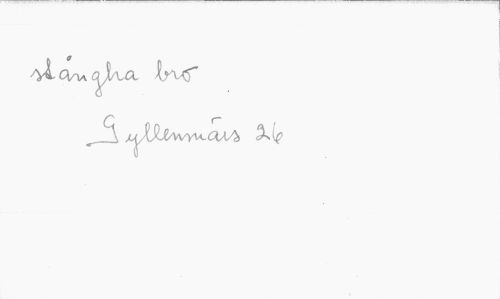 stångha bro
Gyllenmärs 26